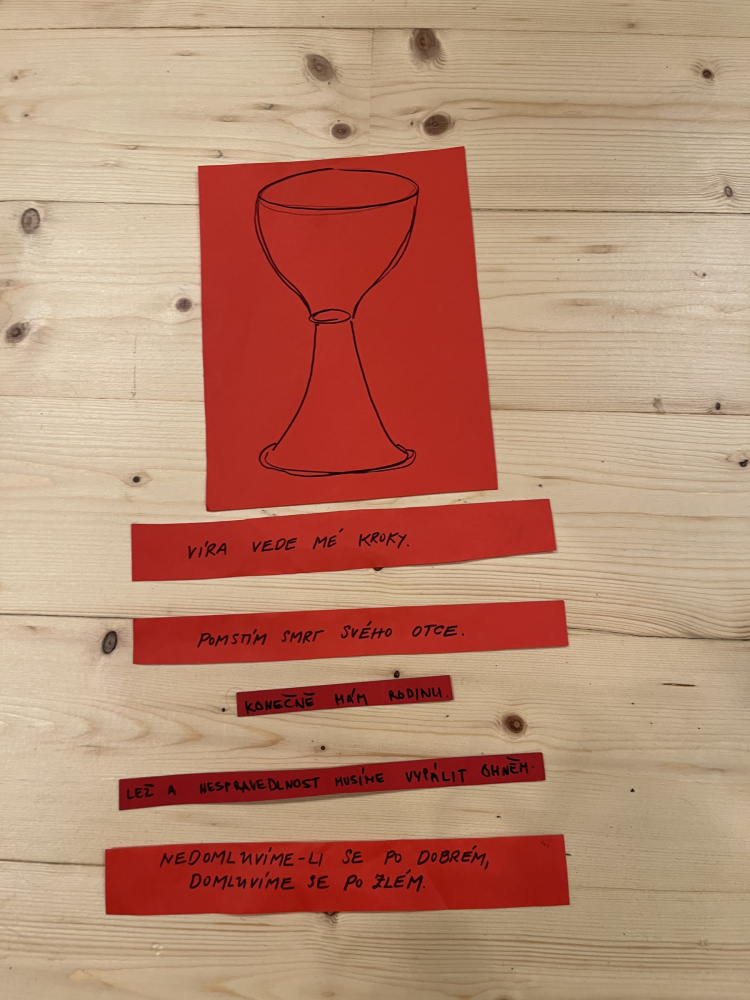 VÍRA VEDE MÉ KROKY.
POMSTÍM SMRT SVÉHO OTCE.
KONEČNĚ MÁM RODINU.
LEŽ A NESPRAVEDLNOST MUSÍME VYPÁLIT OHNĚM.
NEDOMLUVÍME-LI SE PO DOBRÉM,
DOMLUVÍME SE PO ZLÉM.